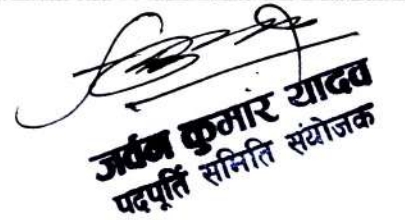 जर्वन कुमार यादव
पदपूर्ति समिति संयोजक